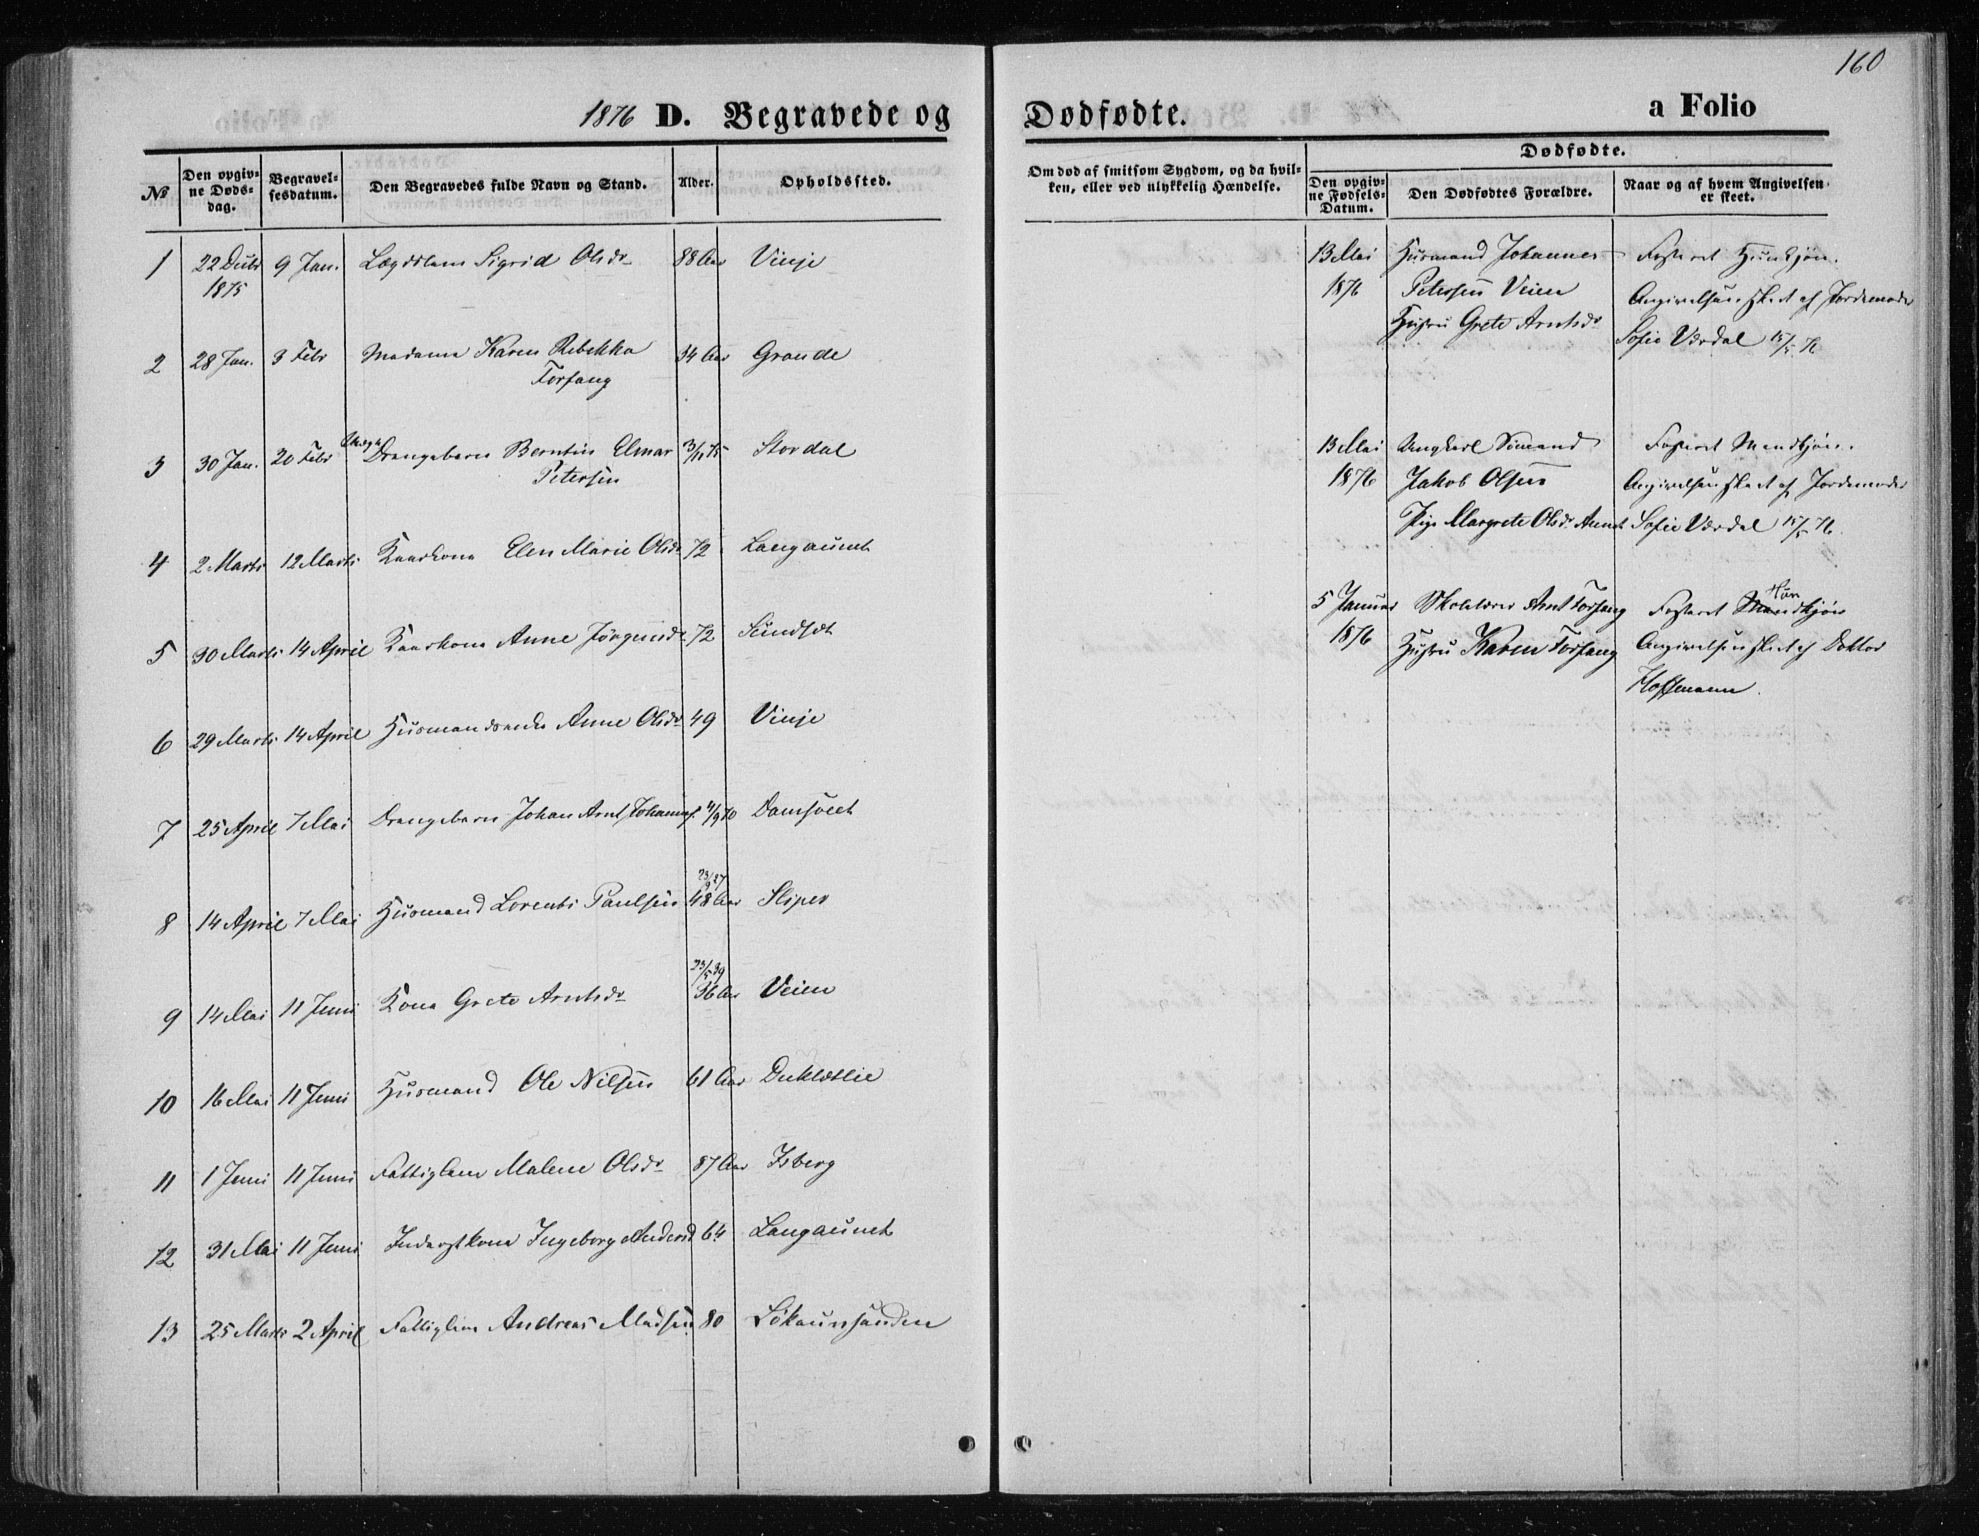 160
1876 D. Begravede og Dødfødte. a Folio
№
Den opgivne Døds-dag.
Begravelsesdatum.
Den Begravedes fulde Navn og Stand.
Alder.
Opholdssted.
Om død af smitsom Sygdom, og da hvilken, eller ved ulykkelig Hændelse.
Dødfødte.
Den opgivne Fødsels-Datum.
Den Dødfødtes Forældre.
Naar og af hvem Angivelsen er skeet.
1 22 Decbr 9 Jan. Lægdslem Sigrid Olsdr 88 Aar Vinje
1875
2 28 Jan. 3 Febr Madame Karen Rebekka 34 Aar Grande
Forfang
3 30 Jan. 20 Febr Uægte Drengebarn Berntin Elmar Stordal
Petersen
4 2 Marts 12 Marts Kaarkone Elen Marie Olsdr 72 Langaunet
5 30 Marts 14 April Kaarkone Anne Jørgensdr 72 Sundset
6 29 Marts 14 April Husmandsenke Anne Olsdr 49 Vinje
7 25 April 7 Mai Drengebarn Johan Arnt Johannes. 4/9 70 Damsvedt
8 14 April 7 Mai Husmand Lorents Paulsen 23/9 27 48 Aar Sliper
9 14 Mai 11 Juni Kone Grete Arntsdr 23/5 39 36 Aar Veien
10 16 Mai 11 Juni Husmand Ole Nilsen 61 Aar
11 1 Juni 11 Juni Fattiglem Malene Olsdr 87 Aar Isberg
12 31 Mai 11 Juni Inderstkone Ingeborg Andersd 64 Langaunet
13 25 Marts 2 April Fattiglem Andreas Madsen 80 Løkaunsanden
13 Mai Husmand Johannes Fosteret Hunkjøn.
1876 Petersen Veien Angivelsen skeet af Jordemoder
Hustru Grete Arntsdr Sofie Værdal 15/5 76
13 Mai Ungkarl Sømand Fosteret Mandkjøn.
1876 Jakob Olsen Angivelsen skeet af Jordemoder
Pige Margrete Olsdr Aunet Sofie Værdal 15/5 76.
5 Januar Skolelærer Arnt Forfang Fosteret Mand Hunkjøn
1876 Hustru Karen Forfang Angivelsen skeet af Doktor
Hoffmann.